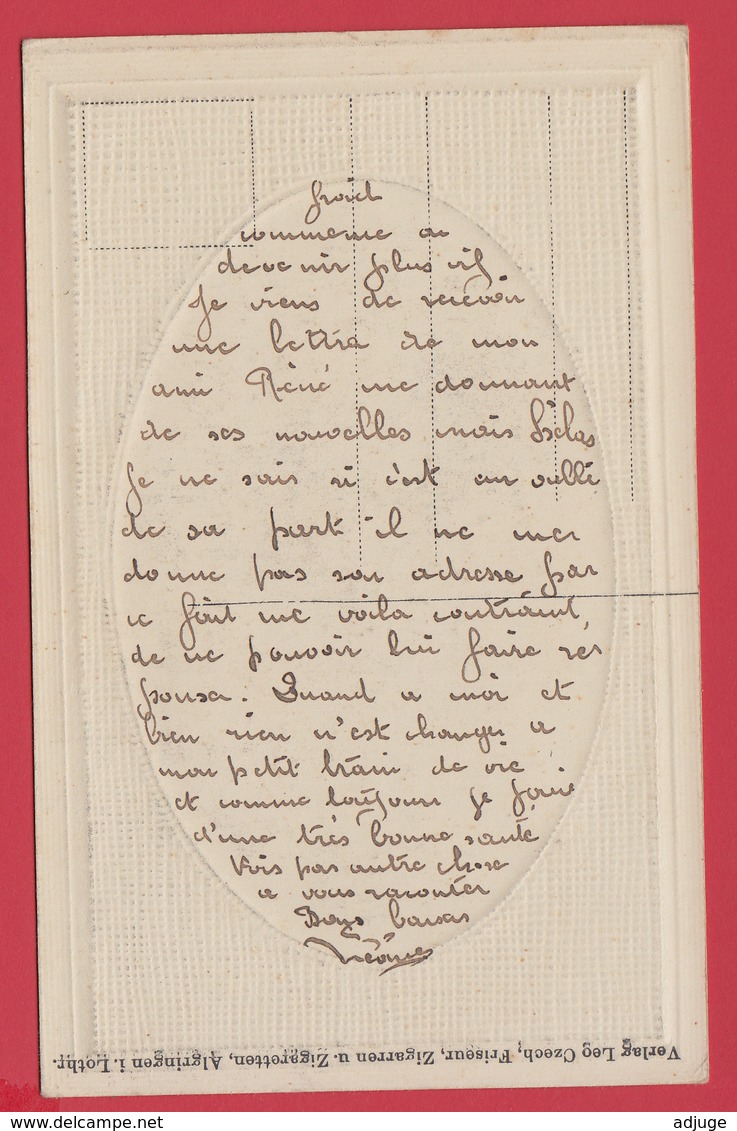 froid
commence a
devenir plus vif
Je viens de recevoir
une lettre de mon
ami Réné me donnant
de ses nouvelles mais hélas
Je ne sais si c'est un oublie
de sa part il ne me
donne pas son adresse par
ce fait me voila contraint
de ne pouvoir lui faire rés
ponse. Quand a moi et
bien rien n'est changer a
mon petit train de vie
et comme toujours je jouie
d'une très bonne santé
Vois pas autre chose
a vous raconter
Bons baisers
Verlag Leo Czech, Friseur, Zigarren u. Zigaretten, Algringen i. Lothr.
adjuge
www.delcampe.net